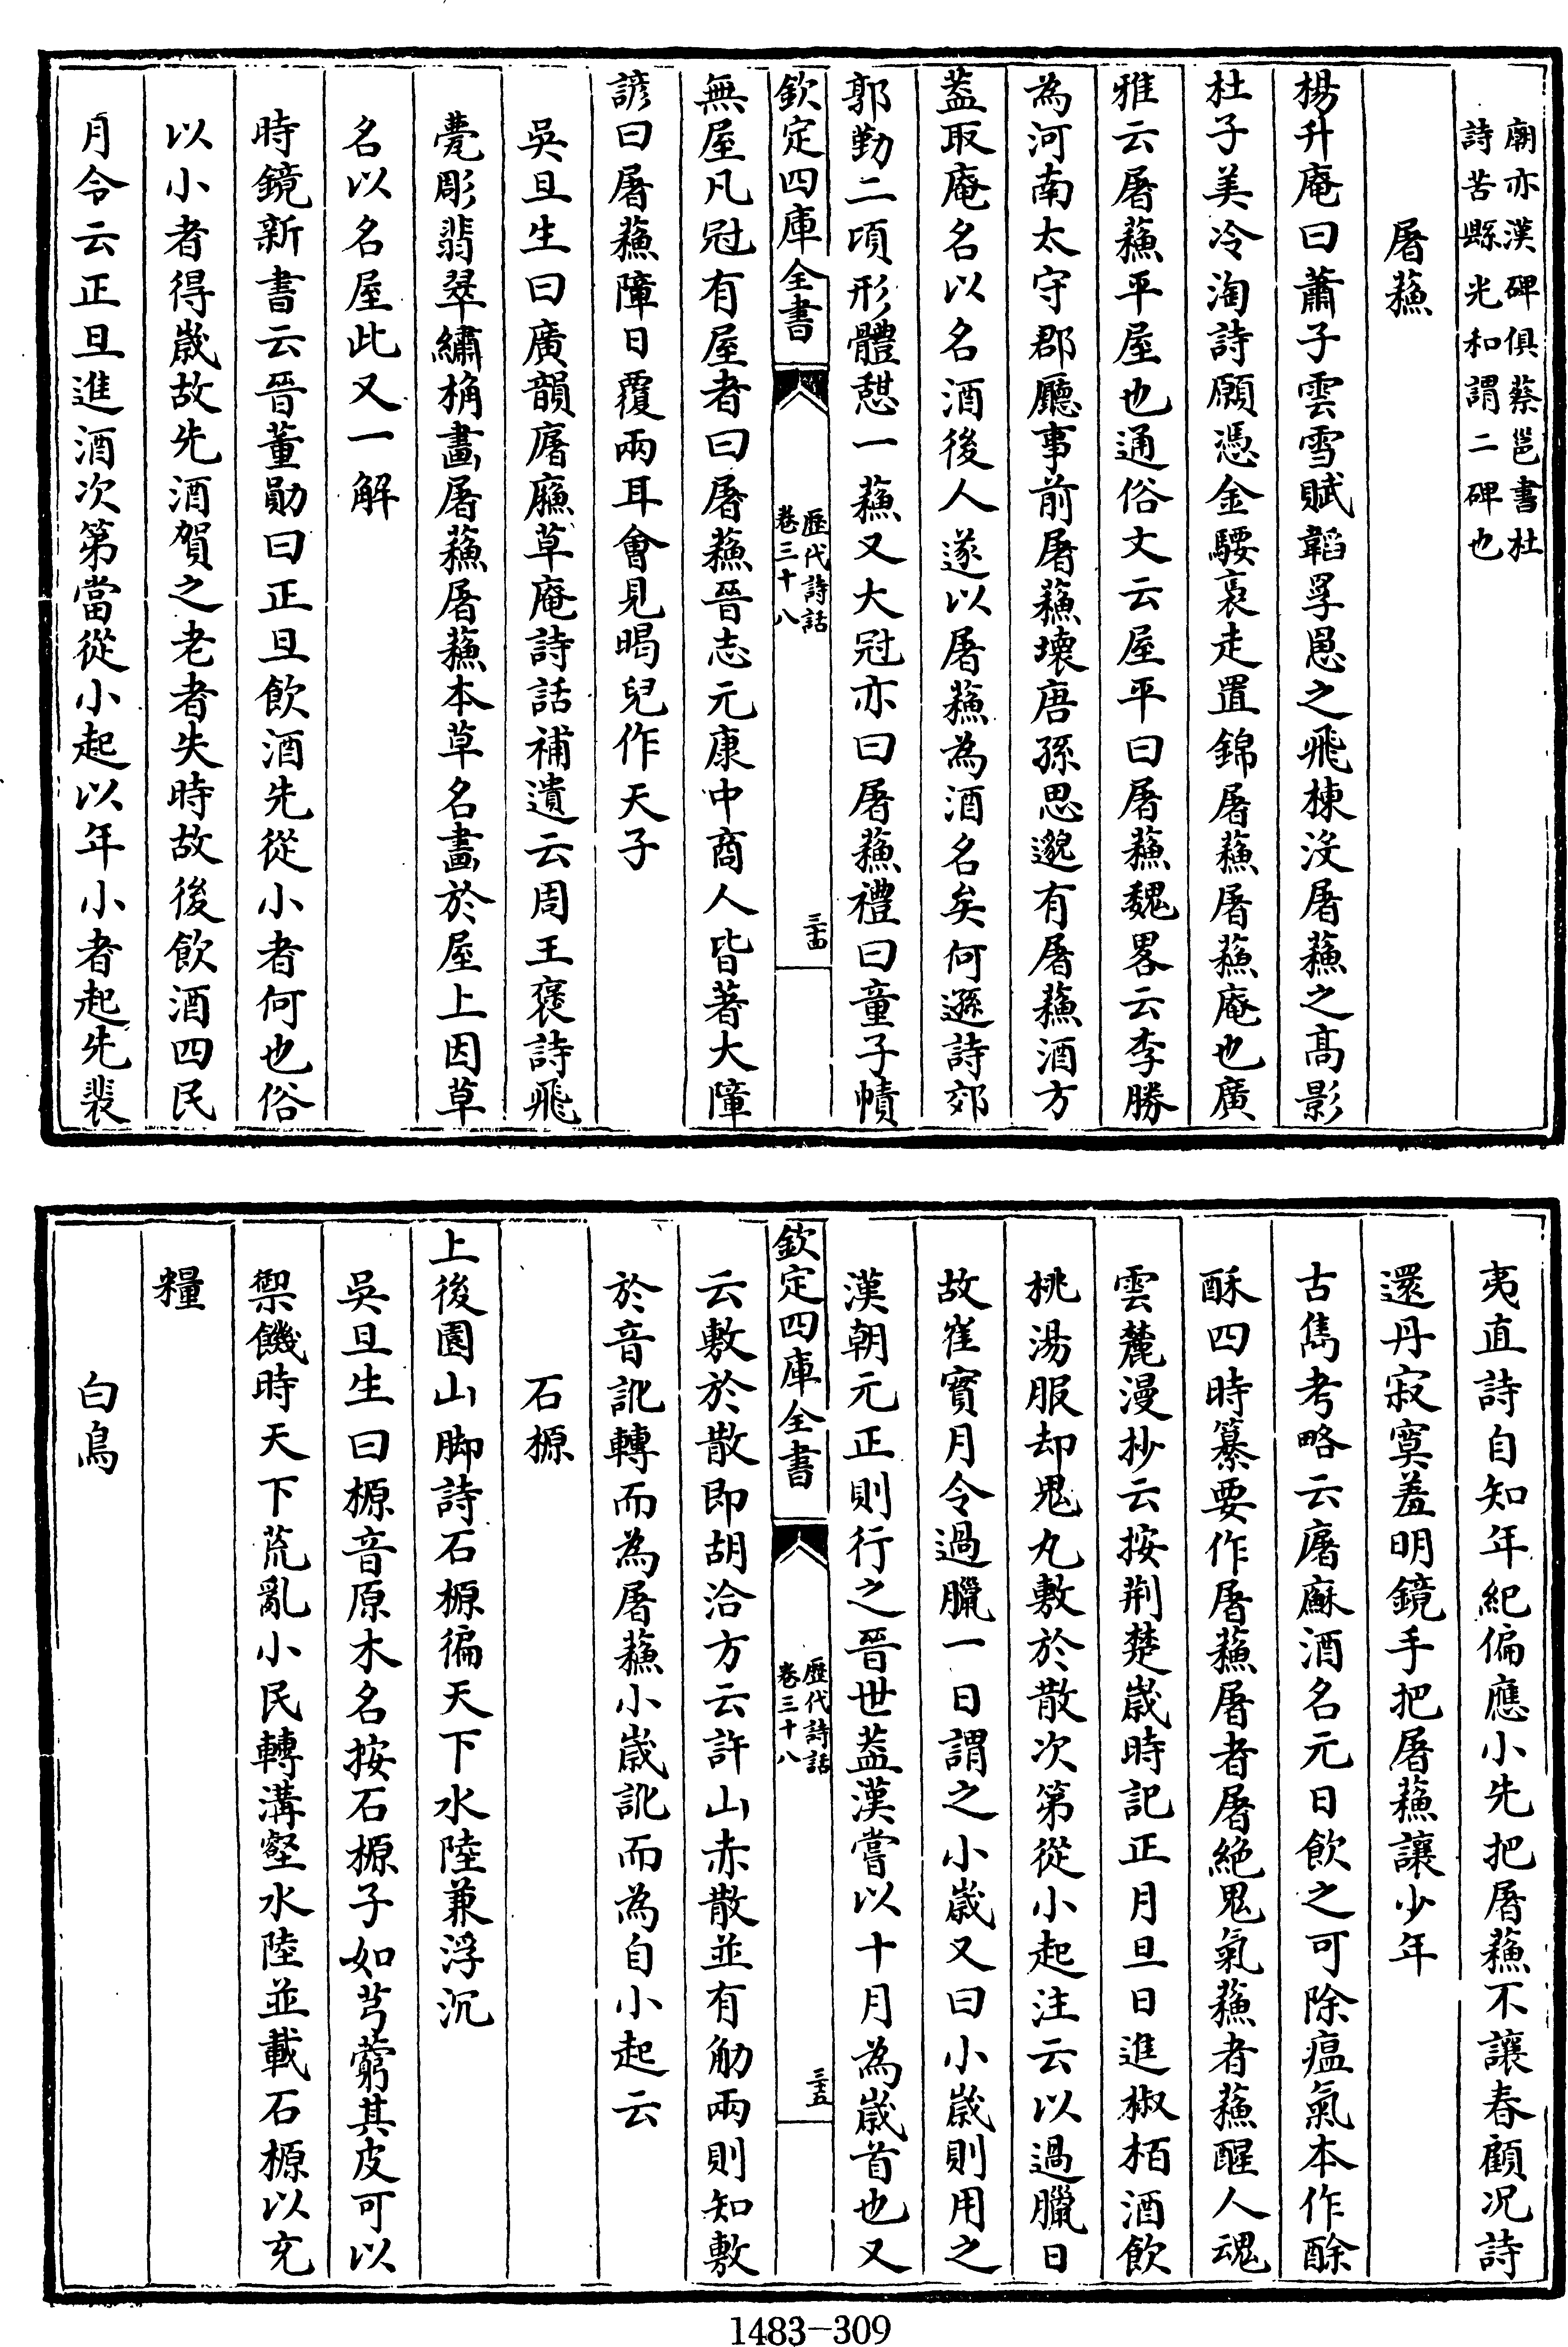 廟亦漢碑俱蔡邕書杜
詩苦縣光和謂二碑也
屠蘓
楊升庵曰蕭子雲雪賦韜罦罳之飛棟沒屠蘓之髙影
杜子美冷淘詩願憑金騕褭走置錦屠蘓屠蘓庵也廣
雅云屠蘓平屋也通俗文云屋平曰屠蘓魏畧云李勝
為河南太守郡廳事前屠蘓壊唐孫思邈有屠蘓酒方
葢取庵名以名酒後人遂以屠蘓為酒名矣何遜詩郊
郭勤二項形體憇一蘓又大冠亦曰屠蘓禮曰童子幘
欽定四庫全書
歴代詩話
卷三十八
三十四
無屋凡冠有屋者曰屠蘓晉志元康中商人皆著大障
諺曰屠蘓障日覆兩耳會見暍兒作天子
吳旦生曰廣韻廜䕷草庵詩話補遺云周王褒詩飛
甍彫翡翠繡桷畫屠蘓屠蘓本草名畫於屋上因草
名以名屋此又一解
時鏡新書云晉董勛曰正旦飲酒先從小者何也俗
以小者得嵗故先酒賀之老者失時故後飲酒四民
月令云正旦進酒次第當從小起以年小者起先裴
夷直詩自知年紀偏應小先把屠蘓不讓春顧况詩
還丹寂寞羞明鏡手把屠蘓讓少年
古雋考略云廜㢝酒名元日飲之可除瘟氣本作酴
酥四時纂要作屠蘓屠者屠絶鬼氣蘓者蘓醒人魂
雲麓漫抄云按荆楚嵗時記正月旦日進椒栢酒飲
桃湯服却鬼丸敷於散次第從小起注云以過臘日
故崔寔月令過臘一日謂之小嵗又曰小嵗則用之
漢朝元正則行之晉世葢漢嘗以十月為嵗首也又
欽定四庫全書
歴代詩話
卷三十八
三十五
云敷於散即胡洽方云許山赤散並有觔兩則知敷
於音訛轉而為屠蘓小嵗訛而為自小起云
石榞
上後園山脚詩石榞徧天下水陸兼浮沉
吳旦生曰榞音原木名按石榞子如芎藭其皮可以
禦饑時天下荒亂小民轉溝壑水陸並載石榞以充
糧
白鳥
1483-309